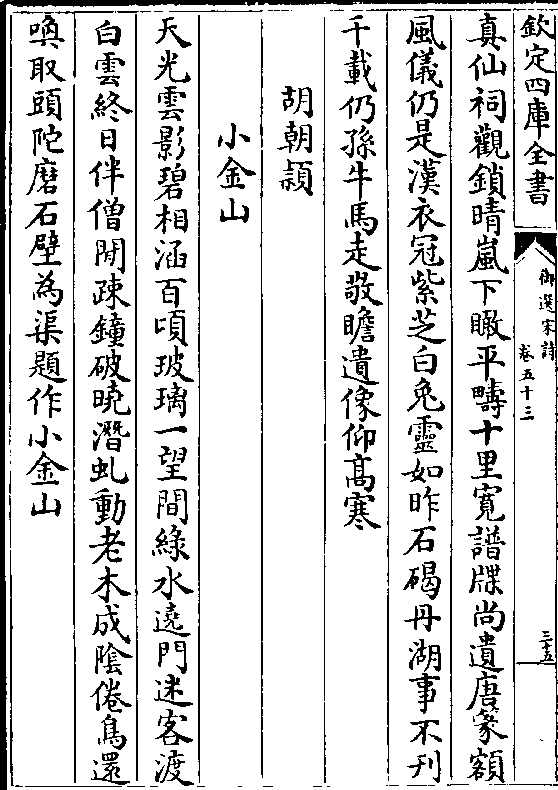 欽定四庫全書
御選宋詩
卷五十三
三十五
真仙祠觀鎖晴嵐下瞰平疇十里寛譜牒尚遺唐篆額
風儀仍是漢衣冠紫芝白兎靈如昨石碣丹湖事不刋
千載仍孫牛馬走敬瞻遺像仰髙寒
胡朝頴
小金山
天光雲影碧相涵百頃玻璃一望間綠水遶門迷客渡
白雲終日伴僧閒疎鐘破曉潛虬動老木成陰倦鳥還
喚取頭陀磨石壁為渠題作小金山